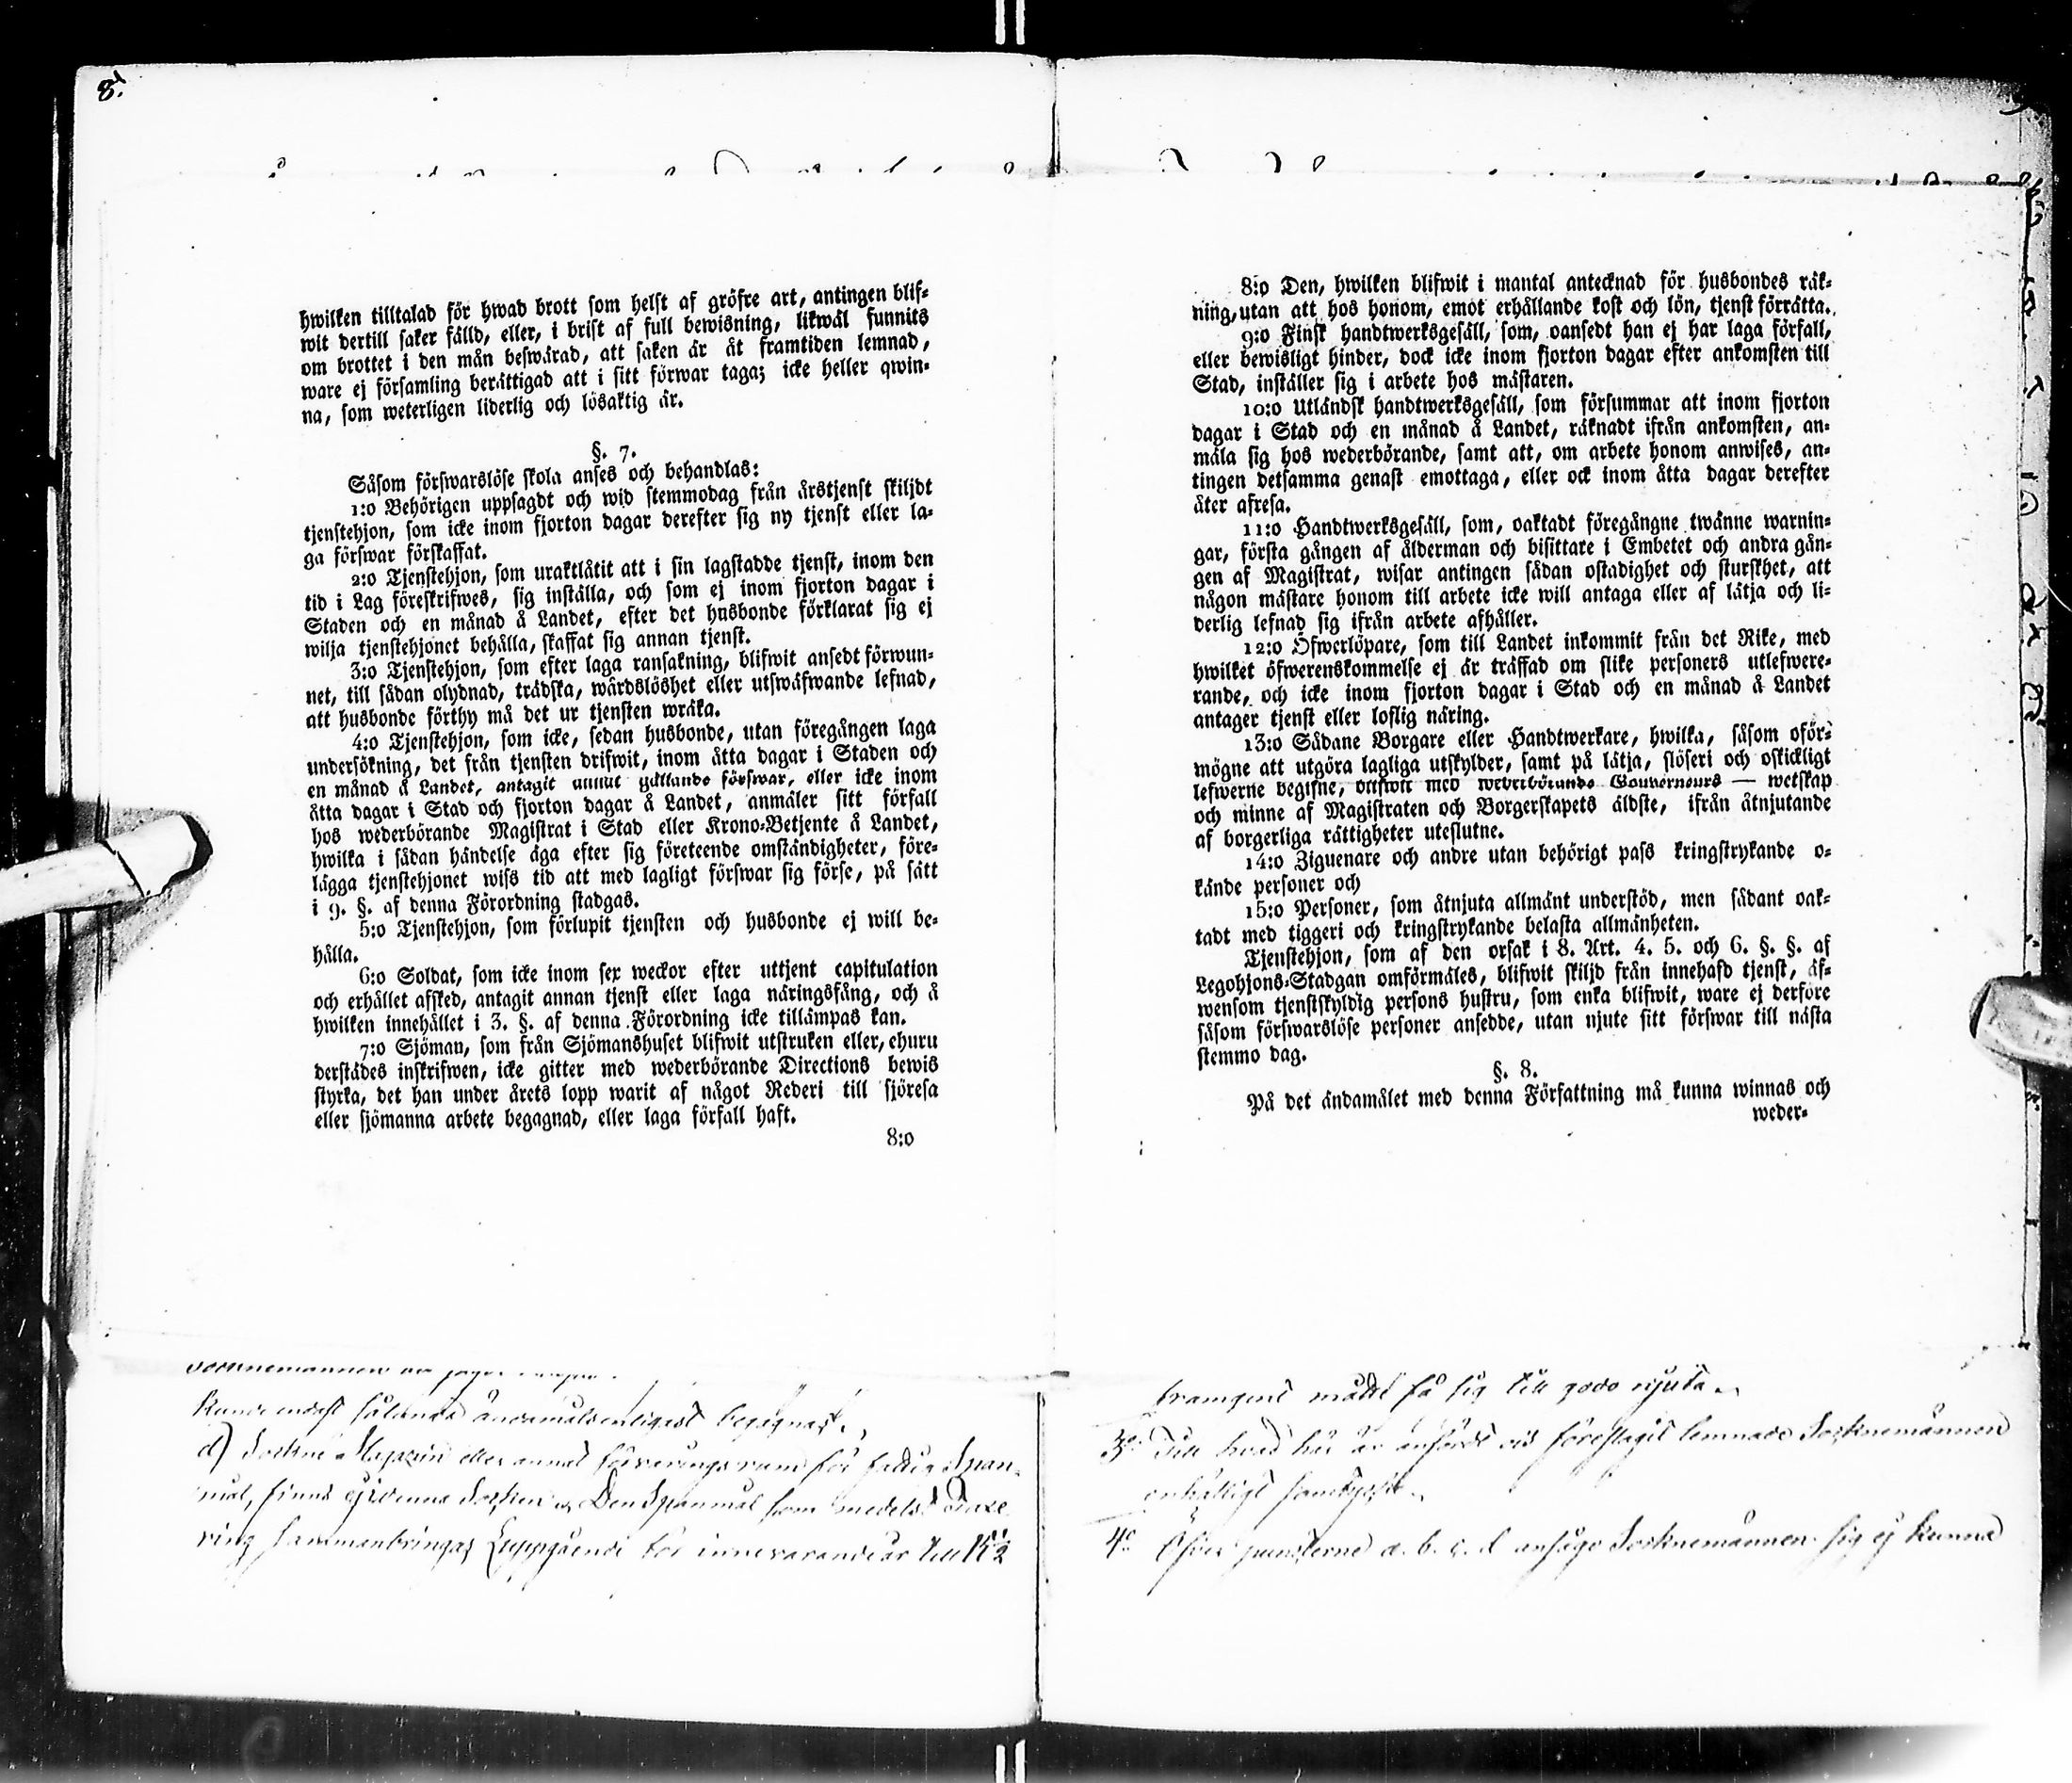 8.
hwilken tilltalad för hwad brott som helst af gröfre art, antingen blif-
wit dertill saker fälld, eller, i brist af full bewisning, likwäl funnits
om brottet i den mån beswärad, att saken är åt framtiden lemnad,
ware ej församling berättigad att i sitt förwar taga; icke heller qwin-
na, som weterligen liderlig och lösaktig är.
§. 7.
Såsom förswarslöse skola anses och behandlas:
1:o Behörigen uppsagdt och wid stemmodag från årstjenst skiljdt
tjenstehjon, som icke inom fjorton dagar derefter sig ny tjenst eller la-
ga förswar förskaffat.
2:o Tjenstehjon, som uraktlåtit att i sin lagstadde tjenst, inom den
tid i Lag föreskrifwes, sig inställa, och som ej inom fjorton dagar i
Staden och en månad å Landet, efter det husbonde förklarat sig ej
wilja tjenstehjonet behålla, skaffat sig annan tjenst.
3:o Tjenstehjon, som efter laga ransakning, blifwit ansedt förwun-
net, till sådan olydnad, trädska, wårdslöshet eller utswäfwande lefnad,
att husbonde förthy må det ur tjensten wräka.
4:o Tjenstehjon, som icke, sedan husbonde, utan föregången laga
undersökning, det från tjensten drifwit, inom åtta dagar i Staden och
en månad å Landet, antagit annat gällande förswar, eller icke inom
åtta dagar i Stad och fjorton dagar å Landet, anmäler sitt förfall
hos wederbörande Magistrat i Stad eller Krono-Betjente å Landet,
hwilka i sådan händelse äga efter sig företeende omständigheter, före-
lägga tjenstehjonet wiss tid att med lagligt förswar sig förse, på sätt
i 9. §. af denna Förordning stadgas.
5:o Tjenstehjon, som förlupit tjensten och husbonde ej will be-
hålla.
6:o Soldat, som icke inom sex weckor efter uttjent capitulation
och erhållet afsked, antagit annan tjenst eller laga näringsfång, och å
hwilken innehållet i 3. §. af denna Förordning icke tillämpas kan.
7:o Sjöman, som från Sjömanshuset blifwit utstruken eller, ehuru
derstädes inskrifwen, icke gitter med wederbörande Directions bewis
styrka, det han under årets lopp warit af något Rederi till sjöresa
eller sjömanna arbete begagnad, eller laga förfall haft.
8:o
kunde endast sålunda ändamålsenligast begagnas.
d) Sockne Magazin eller annat förvarings rum för fattig Span-
mål, finns ej i denna Socken. Den Spanmål som medelst Taxe
ring sammanbringas uppgående för innevarande år till 15½
8:o Den, hwilken blifwit i mantal antecknad för husbondes räk-
ning, utan att hos honom, emot erhållande kost och lön, tjenst förrätta.
9:o Finsk handtwerksgesäll, som, oansedt han ej har laga förfall,
eller bewisligt hinder, dock icke inom fjorton dagar efter ankomsten till
Stad, inställer sig i arbete hos mästaren.
10:o Utländsk handtwerksgesäll, som försummar att inom fjorton
dagar i Stad och en månad å Landet, räknadt ifrån ankomsten, an-
mäla sig hos wederbörande, samt att, om arbete honom anwises, an-
tingen detsamma genast emottaga, eller ock inom åtta dagar derefter
åter afresa.
11:o Handtwerksgesäll, som, oaktadt föregångne twänne warnin-
gar, första gången af ålderman och bisittare i Embetet och andra gån-
gen af Magistrat, wisar antingen sådan ostadighet och sturskhet, att
någon mästare honom till arbete icke will antaga eller af lätja och li-
derlig lefnad sig ifrån arbete afhåller.
12:o Öfwerlöpare, som till Landet inkommit från det Rike, med
hwilket öfwerenskommelse ej är träffad om slike personers utlefwere-
rande, och icke inom fjorton dagar i Stad och en månad å Landet
antager tjenst eller loflig näring.
13:o Sådane Borgare eller Handtwerkare, hwilka, såsom oför-
mögne att utgöra lagliga utskylder, samt på lätja, slöseri och oskickligt
lefwerne begifne, blifwit med wederbörande Gouverneurs — wetskap
och minne af Magistraten och Borgerskapets äldste, ifrån åtnjutande
af borgerliga rättigheter uteslutne.
14:o Ziguenare och andre utan behörigt pass kringstrykande o-
kände personer och
15:o Personer, som åtnjuta allmänt understöd, men sådant oak-
tadt med tiggeri och kringstrykande belasta allmänheten.
Tjenstehjon, som af den orsak i 8. Art. 4. 5. och 6. §. §. af
Legohjons-Stadgan omförmäles, blifwit skiljd från innehafd tjenst, äf-
wensom tjenstskyldig persons hustru, som enka blifwit, ware ej derföre
såsom förswarslöse personer ansedde, utan njute sitt förswar till nästa
stemmo dag.
§. 8.
På det ändamålet med denna Författning må kunna winnas och
weder-
måtte få sig till godo njuta.
3o Till hvad här är anfördt och föreslagit lemnade Socknemännen
enhälligt samtycke.
4o Öfver puncterne a. b. c. d ansågo Socknemännen sig ej kunna